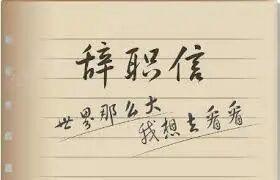 辞职信
世界那么大
我想去看看